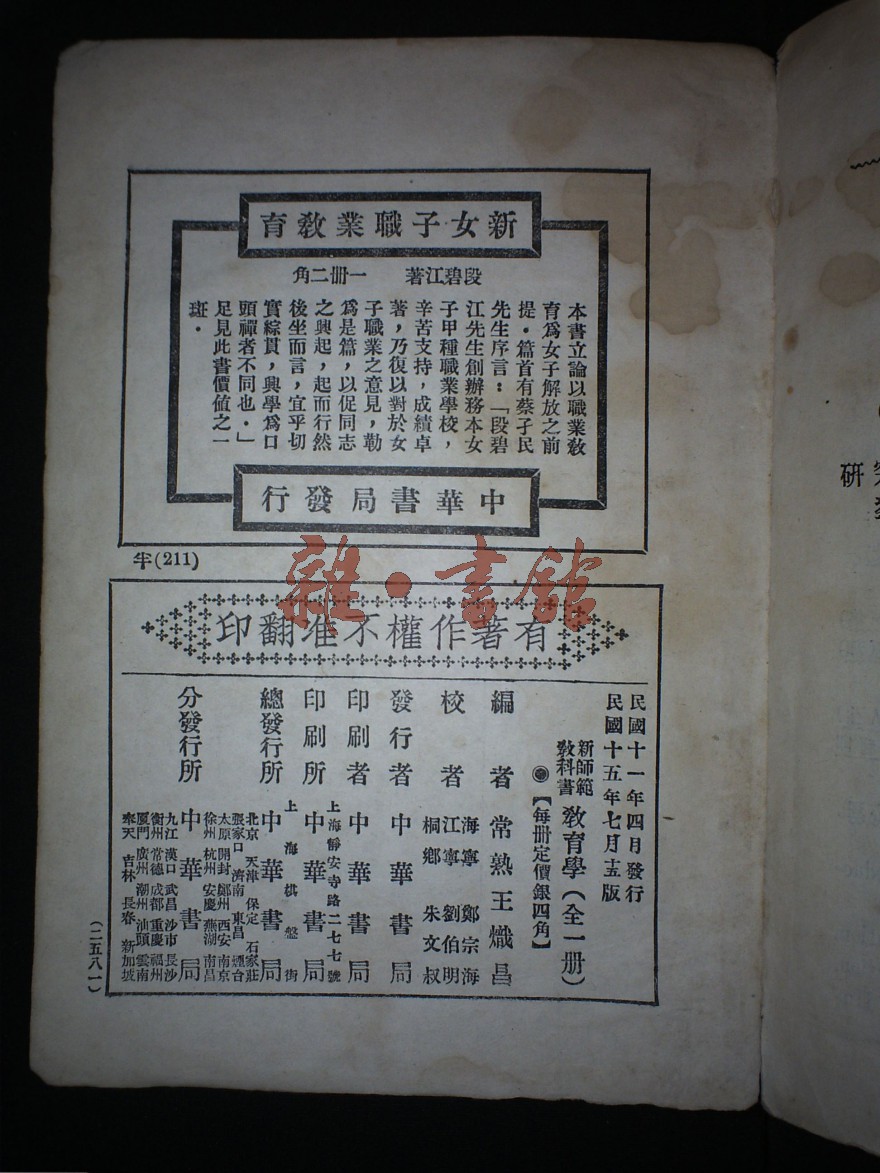 新女子職業敎育
段碧江著　一冊二角
本書立論以職業敎
育爲女子解放之前
提．篇首有蔡孑民
先生序言：「段碧
江先生創辦務本女
子甲種職業學校，
辛苦支持，成績卓
著，乃復以對於女
子職業之意見，勒
爲是篇，以促同志
之興起，起而行然
後坐而言，宜乎切
實綜貫，與學爲口
頭禪者不同也．」
足見此書價値之一
斑．
中華書局發行
(211)
雜·書館
有著作權不准翻印
民國十一年四月發行
民國十五年七月十五版
新師範敎科書 敎育學（全一册）
【每册定價銀四角】
編者 常熟王熾昌
校者 海寧 鄭宗海
江寧 劉伯明
桐鄕 朱文叔
發行者 中華書局
印刷者 中華書局
上海靜安寺路二七七號
印刷所 中華書局
上海棋盤街
總發行所 中華書局
北京 天津 保定 石家莊
張家口 濟南 東昌 烟台
太原 開封 鄭州 西安 南京
徐州 杭州 安慶 蕪湖 南昌
分發行所 中華書局
九江 漢口 武昌 沙市 長沙
衡州 常德 成都 重慶 福州
厦門 廣州 潮州 汕頭 雲南
奉天 吉林 長春 新加坡
（二五八一）
研